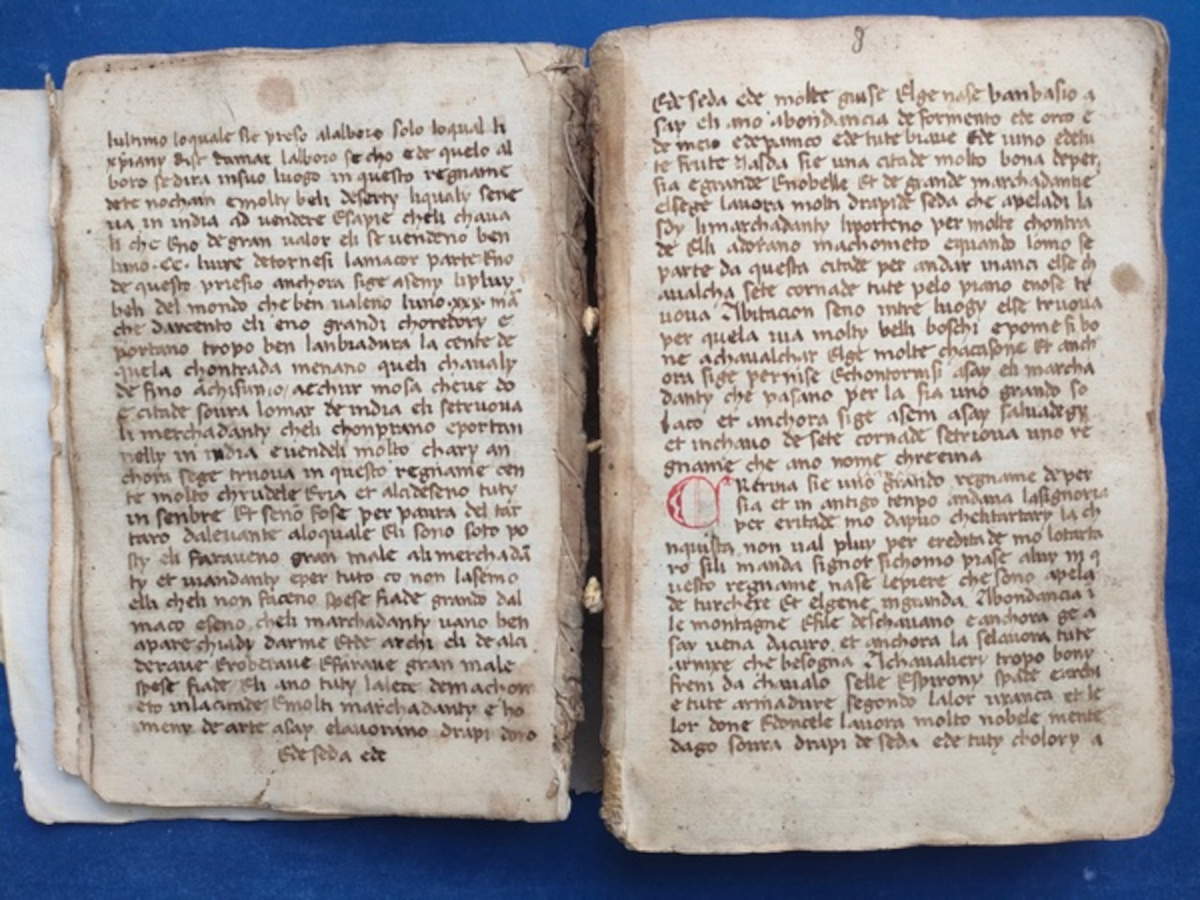 lultimo loquale sie preso alalboro solo loqual li
xpiany dise damar lalboro secho ede quelo al
boro se dira insuo luogo in questo regname
dete nochain emolty beli deserty liqualy sene
va in india ad vendere Esapie cheli chava
li che Eno de gran valor eli se vendeno ben
luno .CC. livre detornesi lamacor parte Eno
de questo priesio anchora sige aseny lipluy
beli del mondo che ben valeno luno .xxx. ma
che darcento eli eno grandi choredory E
portano tropo ben lanbiadura la cente de
quela chontrada menano queli chavaly
de fino achisi aechur mosa cheve do
E citade sovra lomar de india eli setruova
li merchadanty cheli chonprano eportan
nelly in india evendeli molto chary an
chora sege truova in questo regname cen
te molto chrudele Eria et alcideseno tuty
in senbre Et seno fose per paura del tar
taro dalevante aloquale Eli sono soto po
sty eli faraveno gran male ali merchada
ty et viandanty eper tuto co non lasemo
elli cheli non faceno spese fiade grando dal
maco eseno cheli marchadanty vano ben
aparechiady darme Etde archi eli de alci
derave Eroberave Efarave gran male
spese fiade Eli ano tuty lalece demachom
eto inlacitade Emolti marchadanty e ho
meny de arte asay elavorano drapi doro
Ede seda ede
8
Ede seda ede molte guise Elge nase banbasio a
say eli ano abondancia de formento ede orco e
de meio edepanico ede tute biave Ede vino edetu
te frute Iasda sie una citade molto bona deper
sia egrande Enobelle Et de grande marchadantie
elsege lavora molti drapi de seda che apeladi la
sdy limarchadanty liporteno per molte chontra
de Elli adorano machometo equando lomo se
parte da questa citade per andar inanci else ch
avalcha sete cornade tute pelo piano enose tr
vova Abitacion seno intre luogy else truova
per quela via molty belli boschi epomesi bo
ne achavalchar Elge molte chacasone Et anch
ora sige pernise Echontornisi asay eli marcha
danty che pasano per la fia uno grando so
laco et anchora sige aseni asay salvadegy
et inchavo de sete cornade setriova uno re
gname che ano nome chrerina
CRerina sie uno grando regname deper
sia et in antigo tenpo andava lasignoria
per eritade mo dapuo chelitartary la ch
nquista non val pluy per eredita de mo lotarta
ro sili manda signor sichomo piase aluy in q
uesto regname nase lepiere che sono apela
de turchere Et elgene ingranda Abondancia i
le montagne Esile deschavano eanchora ge a
say vena dacuro et anchora la selavora tute
arnixe che besogna Achavalieri tropo bony
freni da chavalo selle Espirony spade earchi
e tute armadure segondo lalor uxanca et le
lor done Edoncele lavora molto nobele mente
dago sovra drapi de seda ede tuty cholory a